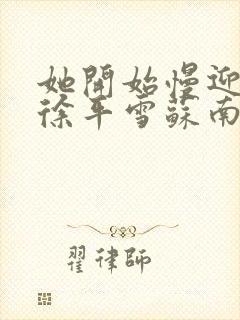 她開始慢迎
徐平雪蘇南
翟律師